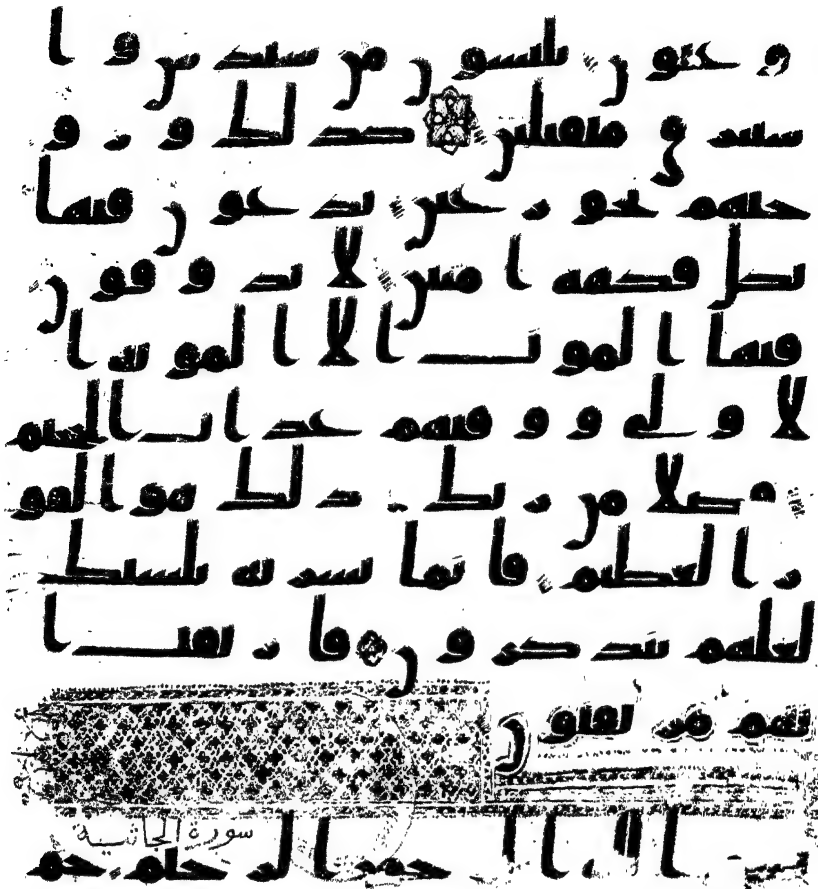 و عيون يلبسون من سندس و ا
ستبرق متقبلين كذلك و زو
جنهم بحور عين يدعون فيها
بكل فكهة امنين لا يذوقون
فيها الموت الا الموتة ا
لاولى ووقيهم عذاب الجحيم
فضلا من ربك ذلك هو الفو
ز العظيم فانما يسرنه بلسنك
لعلهم يتذكرون فارتقب ا
نهم مرتقبون
سورة الجاثية
بسم الله الرحمن الرحيم حم